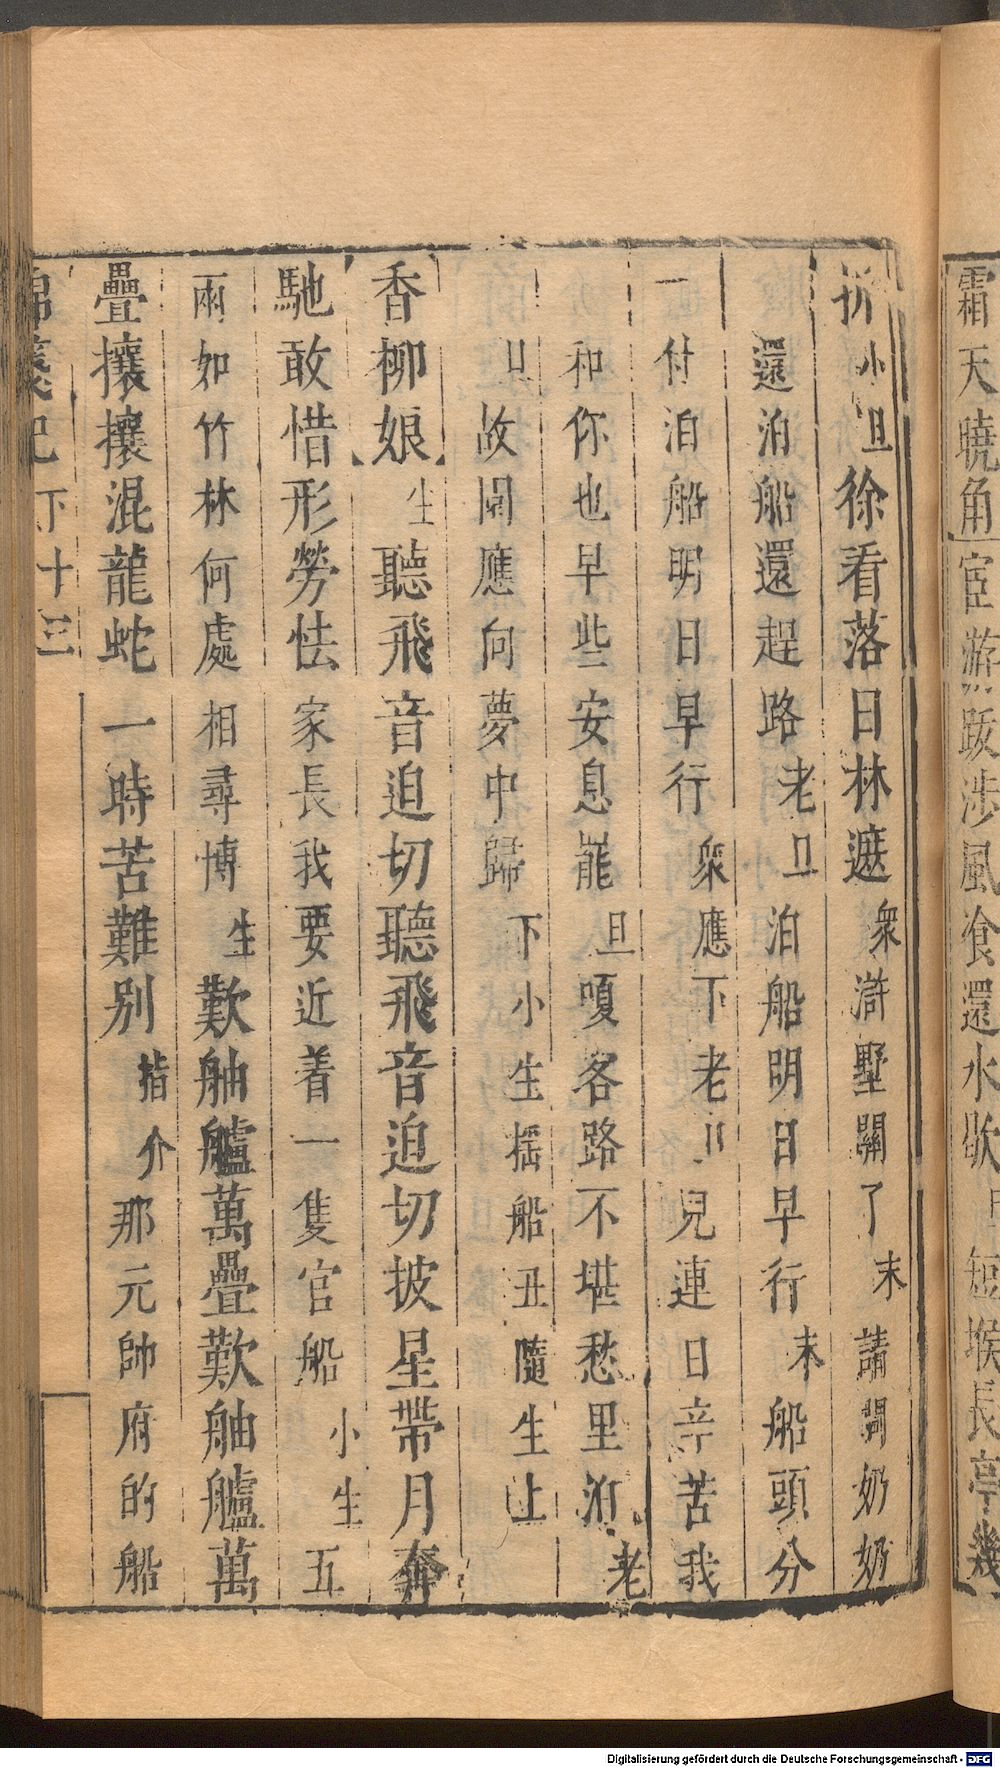 霜天曉角宦游跋涉風飡還水歇旦短堠長亭幾
折小旦徐看落日林遮衆滸墅關了末請問奶奶
還泊船還趕路老旦泊船明日早行末船頭分
付泊船明日早行衆應下老旦兒連日辛苦我
和你也早些安息罷旦嗄客路不堪愁里泊老
旦故園應向夢中歸下小生搖船丑隨生上
香柳娘生聽飛音迫切聽飛音迫切披星帶月奔
馳敢惜形勞怯家長我要近着一隻官船小生五
兩如竹林何處相尋博生歎舳艫萬疊歎舳艫萬
疊攘攘混龍蛇一時苦難别指介那元帥府的船
錦箋記 下 十三
Digitalisierung gefördert durch die Deutsche Forschungsgemeinschaft - DFG